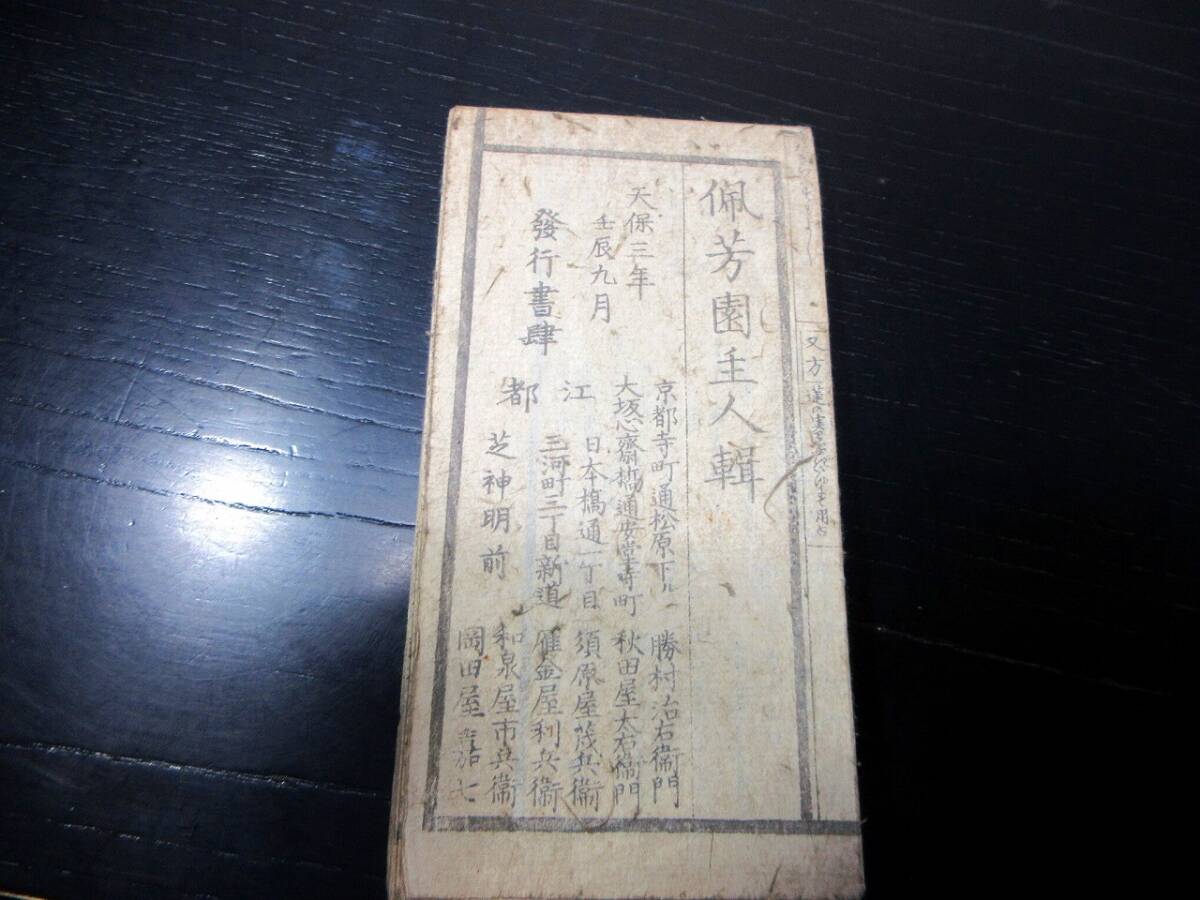 又方
佩芳園主人輯
天保三年
壬辰九月
發行書肆
京都寺町通松原下ル 勝村治右衞門
大坂心齋橋通安堂寺町 秋田屋太右衞門
江都
日本橋通一丁目 須原屋茂兵衞
三河町三丁目新道 雁金屋利兵衞
芝神明前 和泉屋市兵衞
岡田屋嘉七